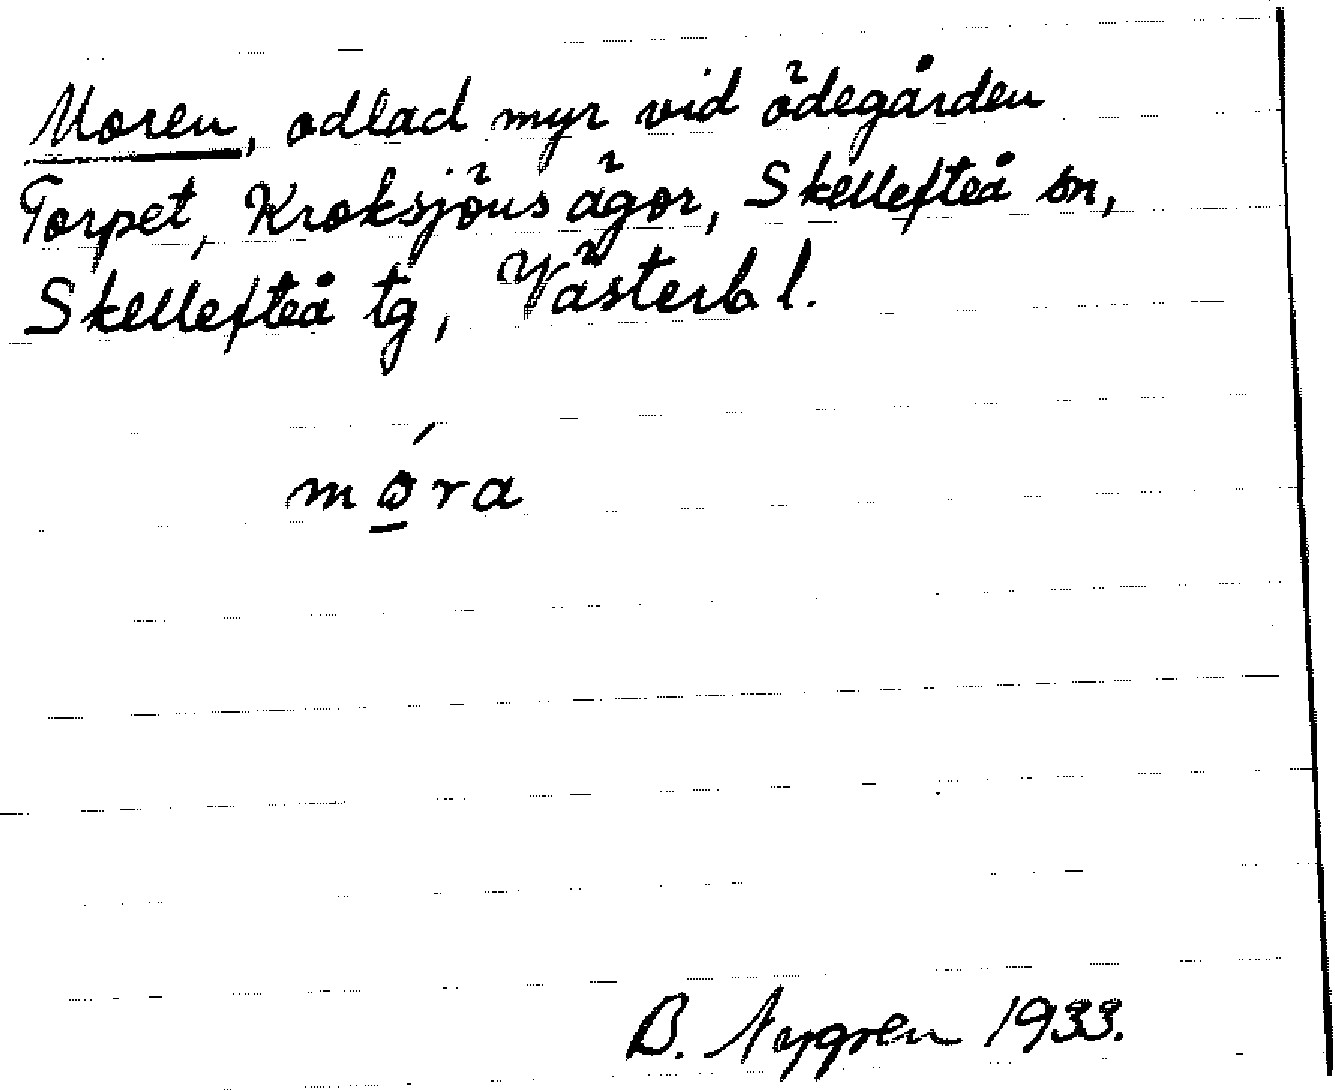 Moren, odlad myr vid ödegården
Torpet, Kroksjöns ägor, Skellefteå sn,
Skellefteå tg, Västerb l.
mo̲ŕa
B. Nygren 1933.